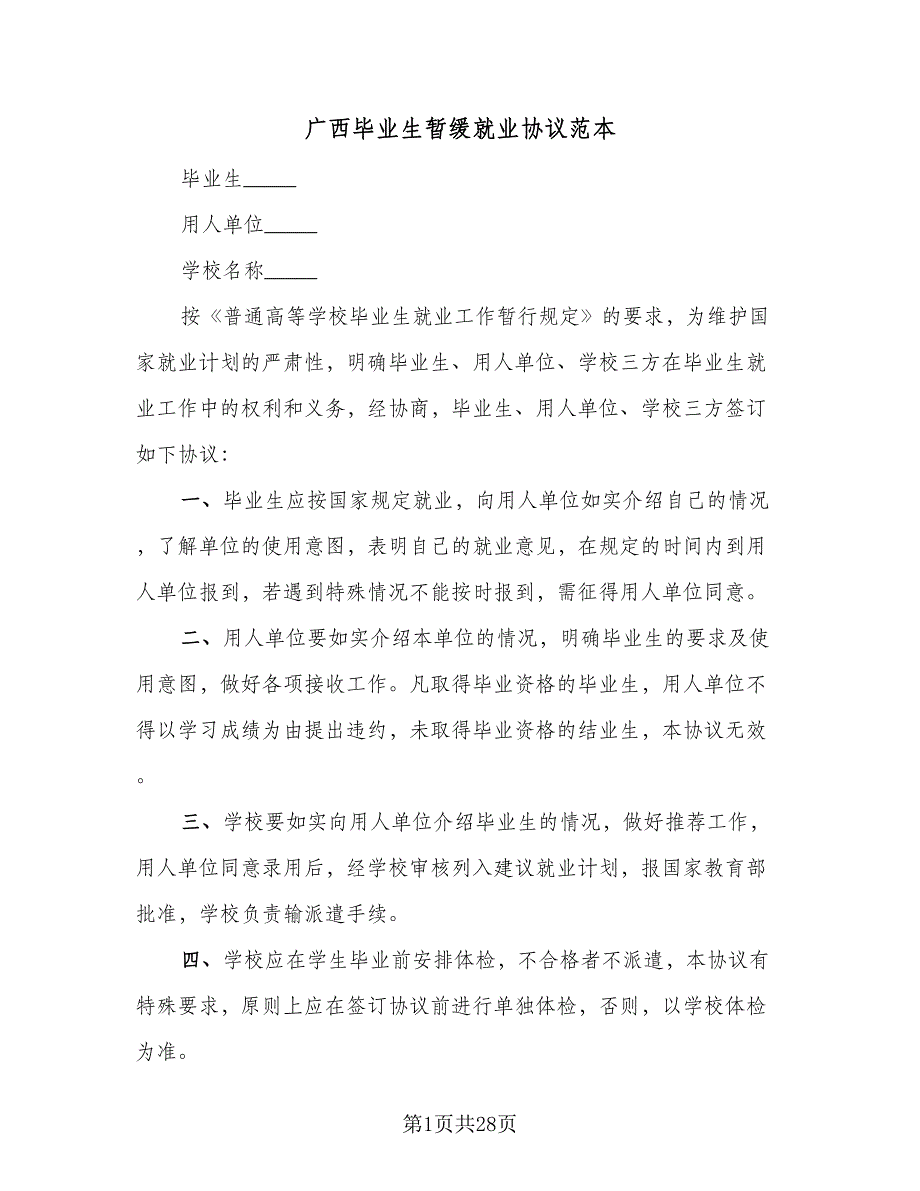 广西毕业生暂缓就业协议范本
毕业生_____
用人单位_____
学校名称_____
按《普通高等学校毕业生就业工作暂行规定》的要求，为维护国
家就业计划的严肃性，明确毕业生、用人单位、学校三方在毕业生就
业工作中的权利和义务，经协商，毕业生、用人单位、学校三方签订
如下协议：
一、毕业生应按国家规定就业，向用人单位如实介绍自己的情况
，了解单位的使用意图，表明自己的就业意见，在规定的时间内到用
人单位报到，若遇到特殊情况不能按时报到，需征得用人单位同意。
二、用人单位要如实介绍本单位的情况，明确毕业生的要求及使
用意图，做好各项接收工作。凡取得毕业资格的毕业生，用人单位不
得以学习成绩为由提出违约，未取得毕业资格的结业生，本协议无效
。
三、学校要如实向用人单位介绍毕业生的情况，做好推荐工作，
用人单位同意录用后，经学校审核列入建议就业计划，报国家教育部
批准，学校负责输派遣手续。
四、学校应在学生毕业前安排体检，不合格者不派遣，本协议有
特殊要求，原则上应在签订协议前进行单独体检，否则，以学校体检
为准。
第1页共28页